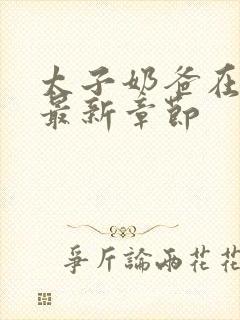 太子奶爸在
最新章節
爭斤論兩花花